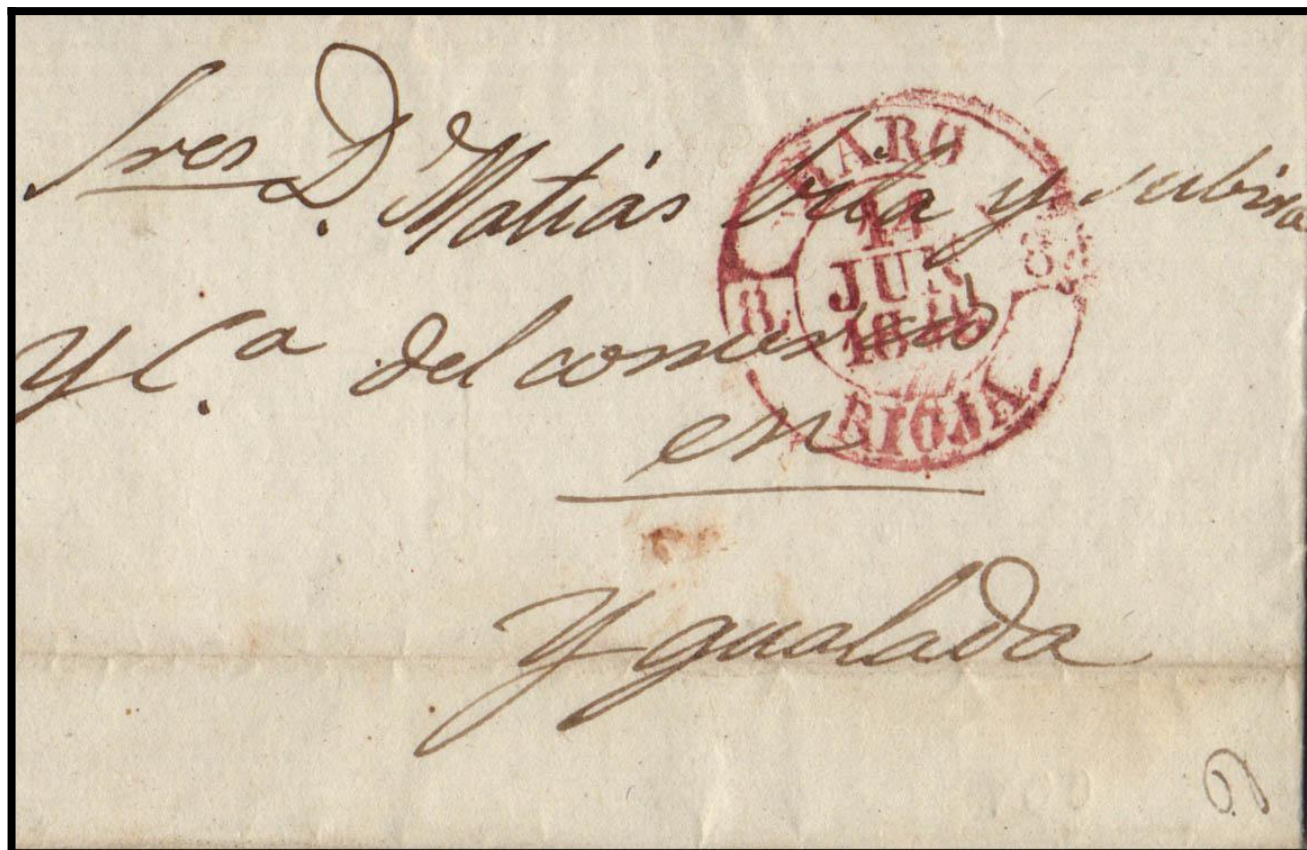 Sres D. Matias Vila y Subira
y C.ª del comercio
en
Ygualada
HARO
14
JUN
8. 8.
RIOJA.